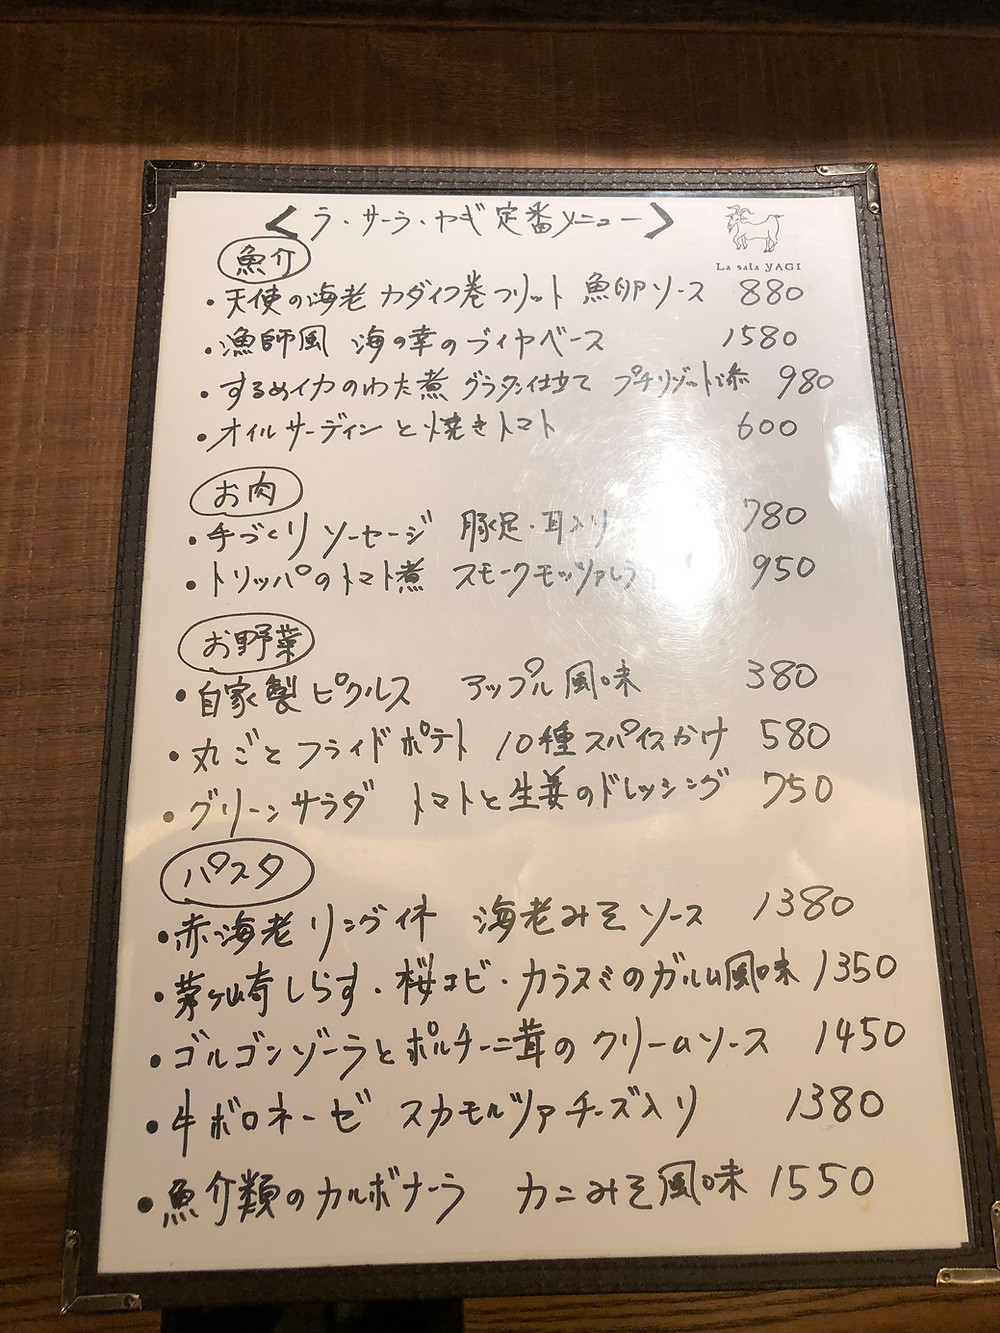 <ラ・サーラ・ヤギ 定番メニュー>
La sala YAGI
魚介
・天使の海老 カダイフ巻フリット 魚卵ソース 880
・漁師風 海の幸のブイヤベース 1580
・するめイカのわた煮 グラタン仕立て プチリゾット添 980
・オイルサーディンと焼きトマト 600
お肉
・手づくりソーセージ 豚足・耳入り 780
・トリッパのトマト煮 スモークモッツァレラ 950
お野菜
・自家製ピクルス アップル風味 380
・丸ごとフライドポテト 10種スパイスかけ 580
・グリーンサラダ トマトと生姜のドレッシング 750
パスタ
・赤海老リングイネ 海老みそソース 1380
・茅ヶ崎しらす・桜エビ・カラスミのガルム風味 1350
・ゴルゴンゾーラとポルチーニ茸のクリームソース 1450
・牛ボロネーゼ スカモルツァチーズ入り 1380
・魚介類のカルボナーラ カニみそ風味 1550